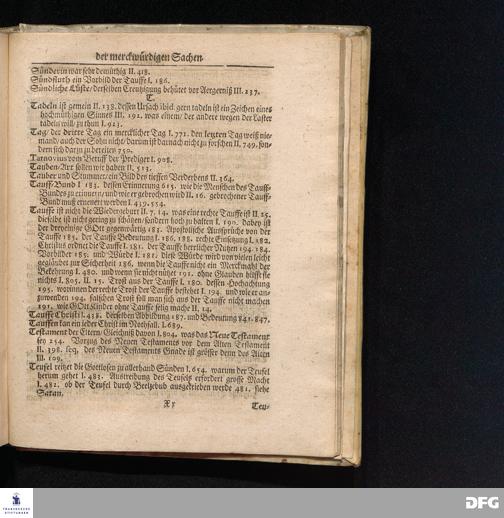 der merckwürdigen Sachen.
Sünderin war sehr demüthig II. 418.
Sündfluth ein Vorbild der Tauffe I. 186.
Sündliche Lüste/ derselben Creutzigung behütet vor Aergerniß III. 237.
T.
Tadeln ist gemein II. 138. dessen Ursach ibid. gern tadeln ist ein Zeichen eines
hochmüthigen Sinnes III. 192. was einem/ der andere wegen der Laster
tadeln will/ zu thun I. 923.
Tag: der dritte Tag ein mercklicher Tag I. 772. den letzten Tag weiß nie-
mand/ auch der Sohn nicht/ darum ist darnach nicht zu forschen II. 749. son-
dern sich darzu zu bereiten 750.
Tarnovius vom Beruff der Prediger I. 908.
Tauben-Art sollen wir haben II. 513.
Tauber und Stummer/ ein Bild der tieffen Verderbens II. 364.
Tauff-Bund I. 183. dessen Erinnerung 615. wie die Menschen des Tauff-
Bundes zu erinnern/ und wie er gebrochen wird II. 16. gebrochener Tauff-
Bund muß erneuert werden I. 439. 554.
Tauffe ist nicht die Wiedergeburt II. 7. 14. was eine rechte Tauffe ist II. 15.
dieselbe ist nicht gering zu schätzen/ sondern hoch zu halten I. 190. dabey ist
der dreyeinige GOtt gegenwärtig 183. Apostolische Aussprüche von der
Tauffe 185. der Tauffe Bedeutung I. 186. 188. rechte Einsetzung I. 182.
Christus ordnet die Tauffe I. 181. der Tauffe herrlicher Nutzen 194. 184.
Vorbilder 185. und Würde I. 181. diese Würde wird von vielen leicht
gegläubet zur Sicherheit 186. wenn die Tauffe nicht ein Merckmahl der
Bekehrung I. 480. und wenn sie nicht nützet 191. ohne Glauben hilfft sie
nichts I. 805. II. 15. Trost aus der Tauffe I. 180. dessen Hochachtung
195. worinnen der rechte Trost der Tauffe bestehet I. 194. und wie er an-
zuwenden 194. falschen Trost soll man sich aus der Tauffe nicht machen
191. wie GOtt Kinder ohne Tauffe selig mache II. 14.
Tauffe Christi I. 438. derselben Abbildung 187. und Bedeutung 841. 847.
Tauffen kan ein jeder Christ im Nothfall. I. 689.
Testament der Eltern Gleichniß davon I. 804. was das Neue Testament
sey 254. Vorzug des Neuen Testaments vor dem Alten Testament
II. 398. seq. des Neuen Testaments Gnade ist grösser denn des Alten
III. 109.
Teufel reitzet die Gottlosen zu allerhand Sünden I. 654. warum der Teufel
herum gehet I. 483. Austreibung des Teufels erfordert grosse Macht
I. 482. ob der Teufel durch Beelzebub ausgetrieben werde 481. siehe
Satan.
Teu-
FRANCKESCHE
STIFTUNGEN
DFG